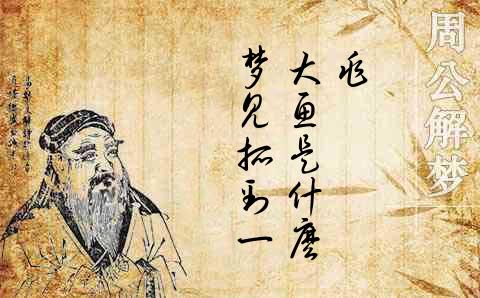 周公解梦
梦见抓到一
大鱼是什麼
兆